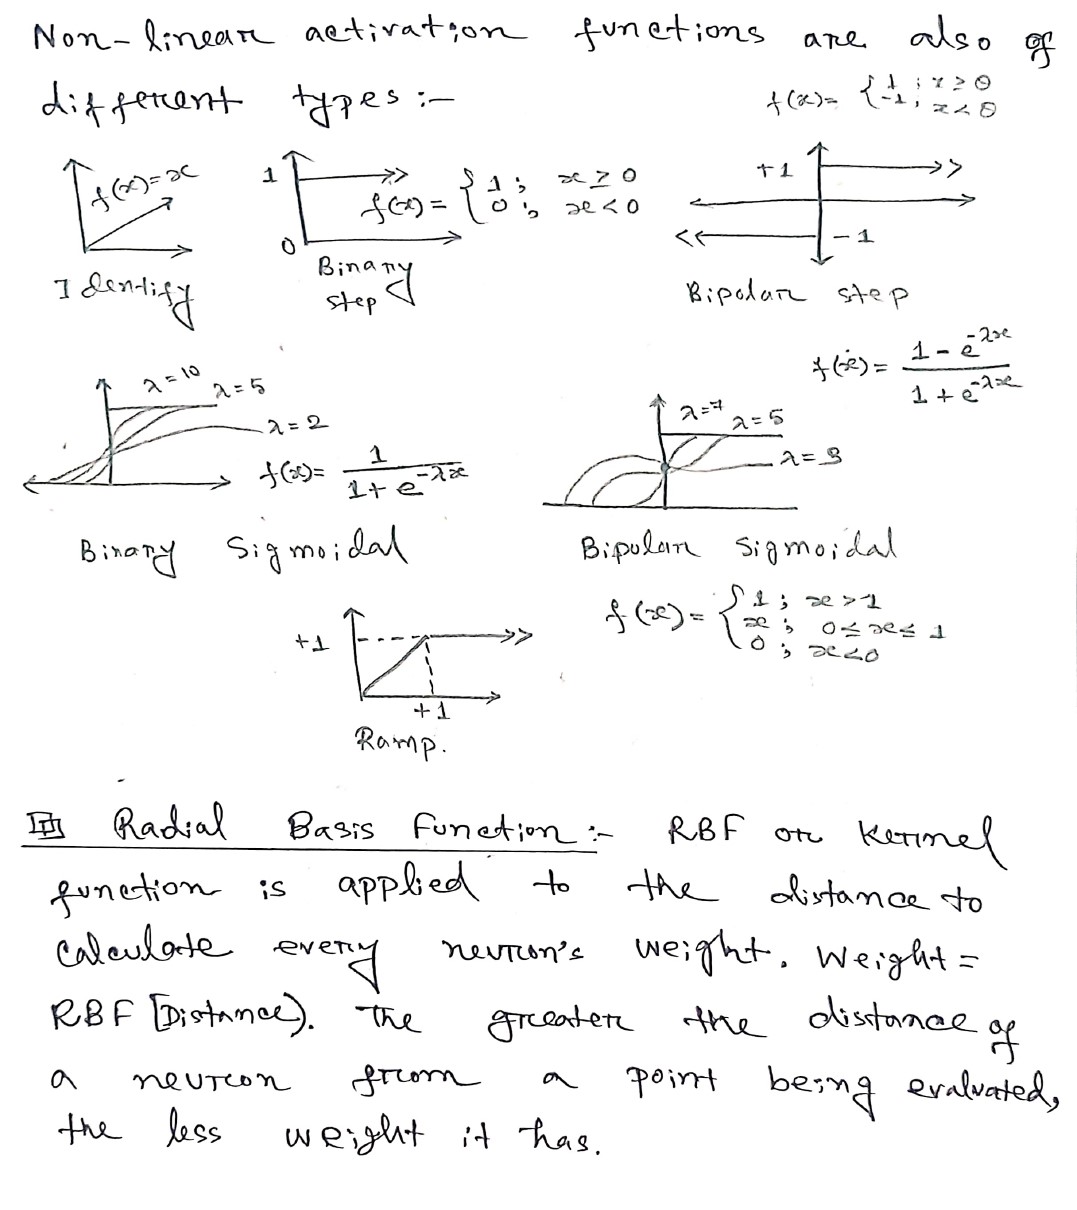 Non-linear activation functions are also of
different types :-
f(x)= {1 ; x ≥ θ
-1 ; x < θ
f(x)=x
Identify
1
0
f(x) = {1 ; x ≥ 0
0 ; x < 0
Binary
step
+1
-1
Bipolar step
λ=10
λ=5
λ=2
f(x)= 1 / (1 + e^-λx)
Binary Sigmoidal
f(x)= (1 - e^-λx) / (1 + e^-λx)
λ=7
λ=5
λ=3
Bipolar Sigmoidal
+1
+1
Ramp.
f(x) = {1 ; x > 1
x ; 0 ≤ x ≤ 1
0 ; x < 0
Radial Basis Function :- RBF or Kernel
function is applied to the distance to
calculate every neuron's weight. Weight =
RBF [Distance). The greater the distance of
a neuron from a point being evaluated,
the less weight it has.